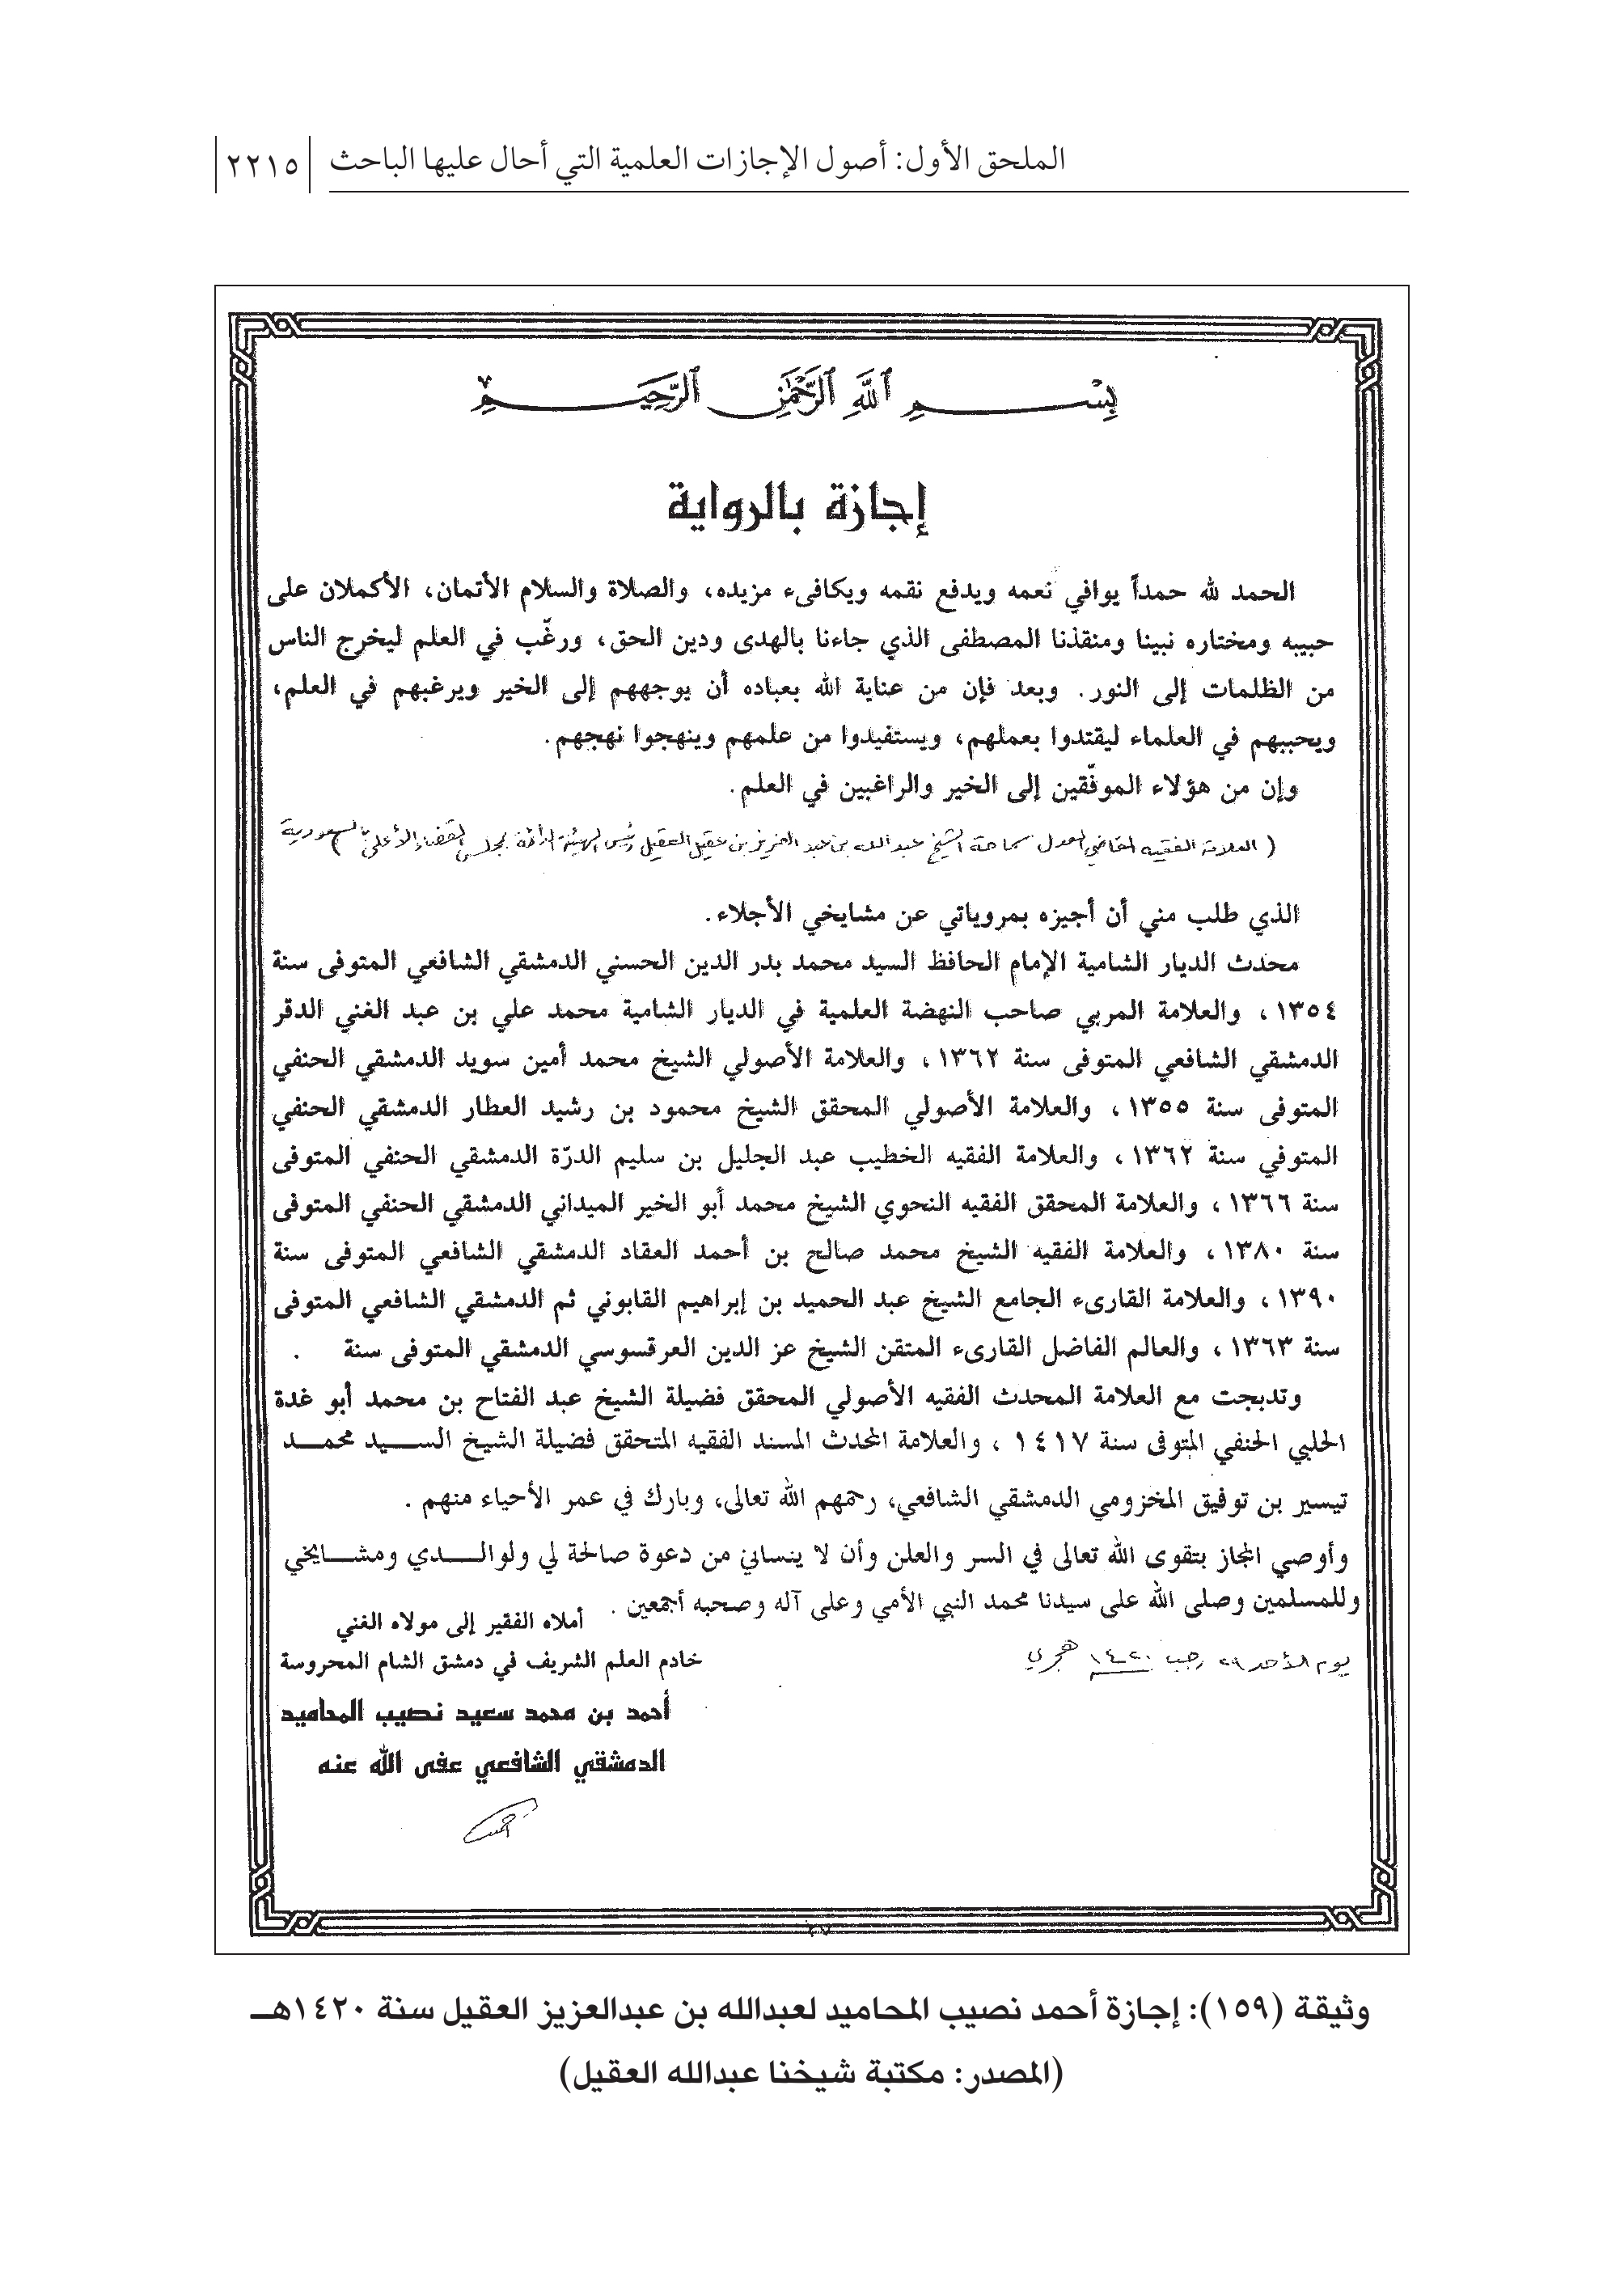 الملحق الأول: أصول الإجازات العلمية التي أحال عليها الباحث
٢٢١٥
بِسْمِ اللَّهِ الرَّحْمَٰنِ الرَّحِيمِ
إجازة بالرواية
الحمد لله حمداً يوافي نعمه ويدفع نقمه ويكافىء مزيده، والصلاة والسلام الأتمان، الأكملان على
حبيبه ومختاره نبينا ومنقذنا المصطفى الذي جاءنا بالهدى ودين الحق، ورغّب في العلم ليخرج الناس
من الظلمات إلى النور. وبعد فإن من عناية الله بعباده أن يوجههم إلى الخير ويرغبهم في العلم،
ويحببهم في العلماء ليقتدوا بعملهم، ويستفيدوا من علمهم وينهجوا نهجهم.
وإن من هؤلاء الموفّقين إلى الخير والراغبين في العلم.
( العلامة الفقيه القاضي المعدل سماحة الشيخ عبد الله بن عبد العزيز بن عقيل العقيل رئيس الهيئة الدائمة بمجلس القضاء الأعلى بالسعودية )
الذي طلب مني أن أجيزه بمروياتي عن مشايخي الأجلاء.
محدث الديار الشامية الإمام الحافظ السيد محمد بدر الدين الحسني الدمشقي الشافعي المتوفى سنة
١٣٥٤، والعلامة المربي صاحب النهضة العلمية في الديار الشامية محمد علي بن عبد الغني الدقر
الدمشقي الشافعي المتوفى سنة ١٣٦٢، والعلامة الأصولي الشيخ محمد أمين سويد الدمشقي الحنفي
المتوفى سنة ١٣٥٥، والعلامة الأصولي المحقق الشيخ محمود بن رشيد العطار الدمشقي الحنفي
المتوفي سنة ١٣٦٢، والعلامة الفقيه الخطيب عبد الجليل بن سليم الدرّة الدمشقي الحنفي المتوفى
سنة ١٣٦٦، والعلامة المحقق الفقيه النحوي الشيخ محمد أبو الخير الميداني الدمشقي الحنفي المتوفى
سنة ١٣٨٠، والعلامة الفقيه الشيخ محمد صالح بن أحمد العقاد الدمشقي الشافعي المتوفى سنة
١٣٩٠، والعلامة القارىء الجامع الشيخ عبد الحميد بن إبراهيم القابوني ثم الدمشقي الشافعي المتوفى
سنة ١٣٦٣، والعالم الفاضل القارىء المتقن الشيخ عز الدين العرقسوسي الدمشقي المتوفى سنة .
وتدبجت مع العلامة المحدث الفقيه الأصولي المحقق فضيلة الشيخ عبد الفتاح بن محمد أبو غدة
الحلبي الحنفي المتوفى سنة ١٤١٧ ، والعلامة المحدث المسند الفقيه المتحقق فضيلة الشيخ السيد محمد
تيسير بن توفيق المخزومي الدمشقي الشافعي، رحمهم الله تعالى، وبارك في عمر الأحياء منهم .
وأوصي المجاز بتقوى الله تعالى في السر والعلن وأن لا ينساني من دعوة صالحة لي ولوالدي ومشايخي
وللمسلمين وصلى الله على سيدنا محمد النبي الأمي وعلى آله وصحبه أجمعين .
أملاه الفقير إلى مولاه الغني
يوم الأحد ٢٩ رجب ١٤٢٠ هجري
خادم العلم الشريف في دمشق الشام المحروسة
أحمد بن محمد سعيد نصيب المحاميد
الدمشقي الشافعي عفى الله عنه
وثيقة (١٥٩): إجازة أحمد نصيب المحاميد لعبدالله بن عبدالعزيز العقيل سنة ١٤٢٠هـ
(المصدر: مكتبة شيخنا عبدالله العقيل)